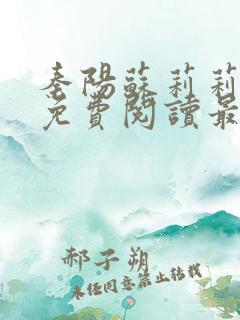 秦陽蘇莉莉
免費閱讀最
郝子朔
未經同意禁止轉載